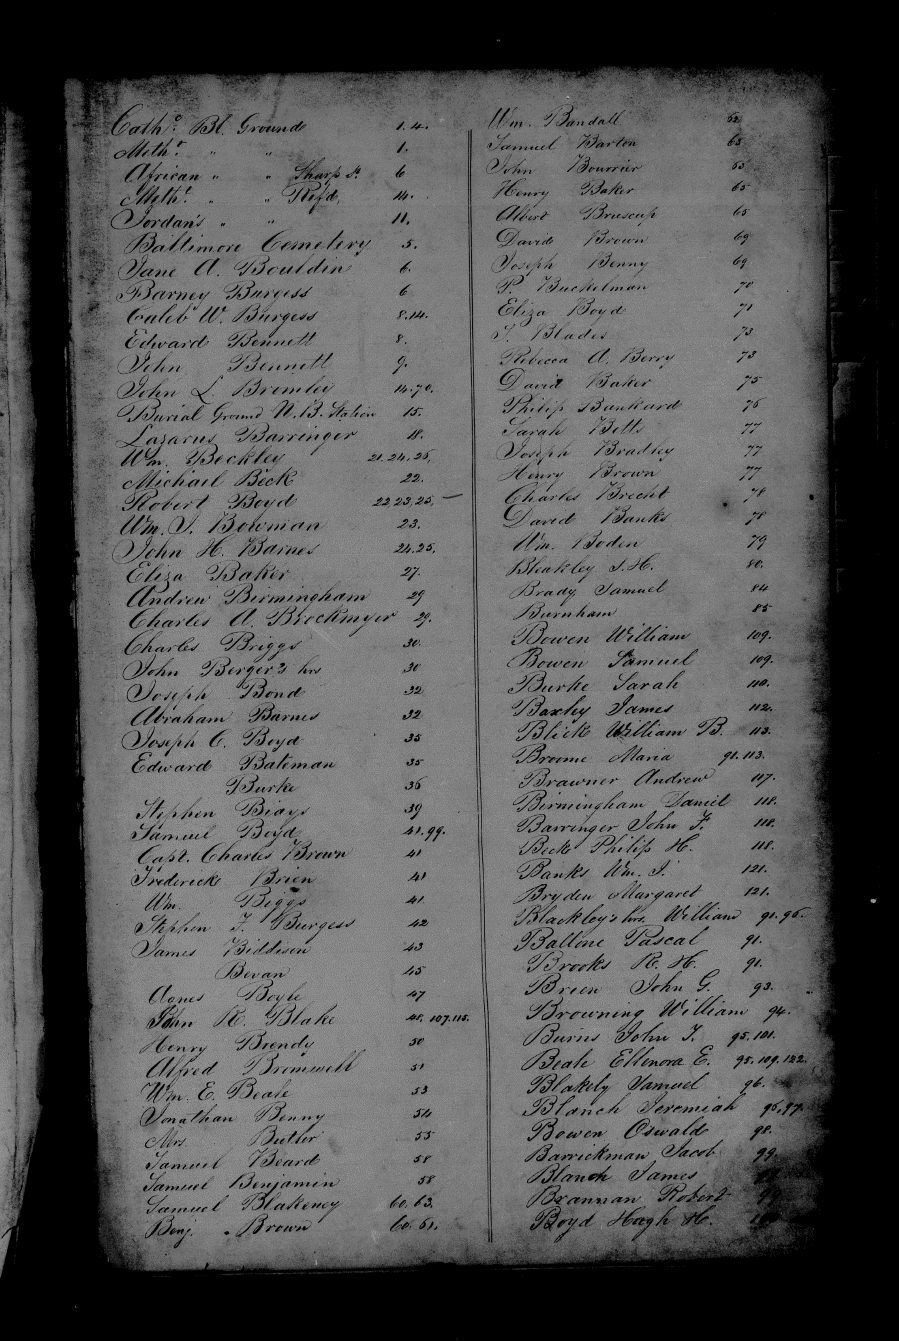 Cath.c Bl. Ground 1.4.
Meth.t " " 1.
African " " Sharp St. 6
Meth.t " " Ref'd, 14.
Jordan's " " 11.
Baltimore Cemetery 5.
Jane A. Bouldin 6.
Barney Burgess 6
Caleb W. Burgess 8.14.
Edward Bennett 8.
John Bennett 9.
John L. Bromley 14.70.
Burial Ground N.B. Station 15.
Lazarus Barringer 18.
Wm. Beckley 21.24.26.
Michael Beck 22.
Robert Boyd 22.23.25.
Wm. J. Bowman 23.
John H. Barnes 24.25.
Eliza Baker 27.
Andrew Birmingham 29
Charles A. Brockmyer 29.
Charles Briggs 30
John Berger's hrs 30
Joseph Bond 32
Abraham Barnes 32
Joseph C. Boyd 35
Edward Bateman 35
Burke 36
Stephen Biays 39
Samuel Boyd 41.99.
Capt. Charles Brown 41
Frederick Brien 41
Wm. Biggs 41
Stephen T. Burgess 42
James Biddison 43
Bevan 45
Agnes Boyle 47
John R. Blake 48.107.115.
Henry Brendy 50
Alfred Bromwell 51
Wm. E. Beale 53
Jonathan Benny 54
Mrs. Butler 55
Samuel Beard 58
Samuel Benjamin 58
Samuel Blakeney 60.63.
Benj. Brown 60.61.
Wm. Bandall 62
Samuel Barton 63
John Bourrier 65
Henry Baker 65
Albert Bruscup 65
David Brown 69
Joseph Benny 69
P. Buckelman 70
Eliza Boyd 71
S. Blades 73
Rebecca A. Berry 73
David Baker 75
Philip Bankard 76
Sarah Betts 77
Joseph Bradley 77
Henry Brown 77
Charles Brecht 78
David Banks 78
Wm. Boden 79
Bleakley J.H. 80.
Brady Samuel 84
Burnham 85
Bowen William 109.
Bowen Samuel 109.
Burke Sarah 110.
Baxley James 112.
Blick William B. 113.
Broome Maria 91.113.
Brawner Andrew 117.
Birmingham Daniel 118.
Barringer John F. 118.
Beck Philip H. 118.
Banks Wm. J. 121.
Bryden Margaret 121.
Blackley's hrs. William 91.96.
Ballone Pascal 91.
Brooks R. H. 91.
Brien John G. 93.
Browning William 94.
Burns John T. 95.101.
Beale Ellenora E. 95.109.122.
Blakely Samuel 96.
Blanch Jeremiah 96.97.
Bowen Oswald 98.
Barrickman Jacob 99.
Blanch James
Brannan Robert 99
Boyd Hugh H.